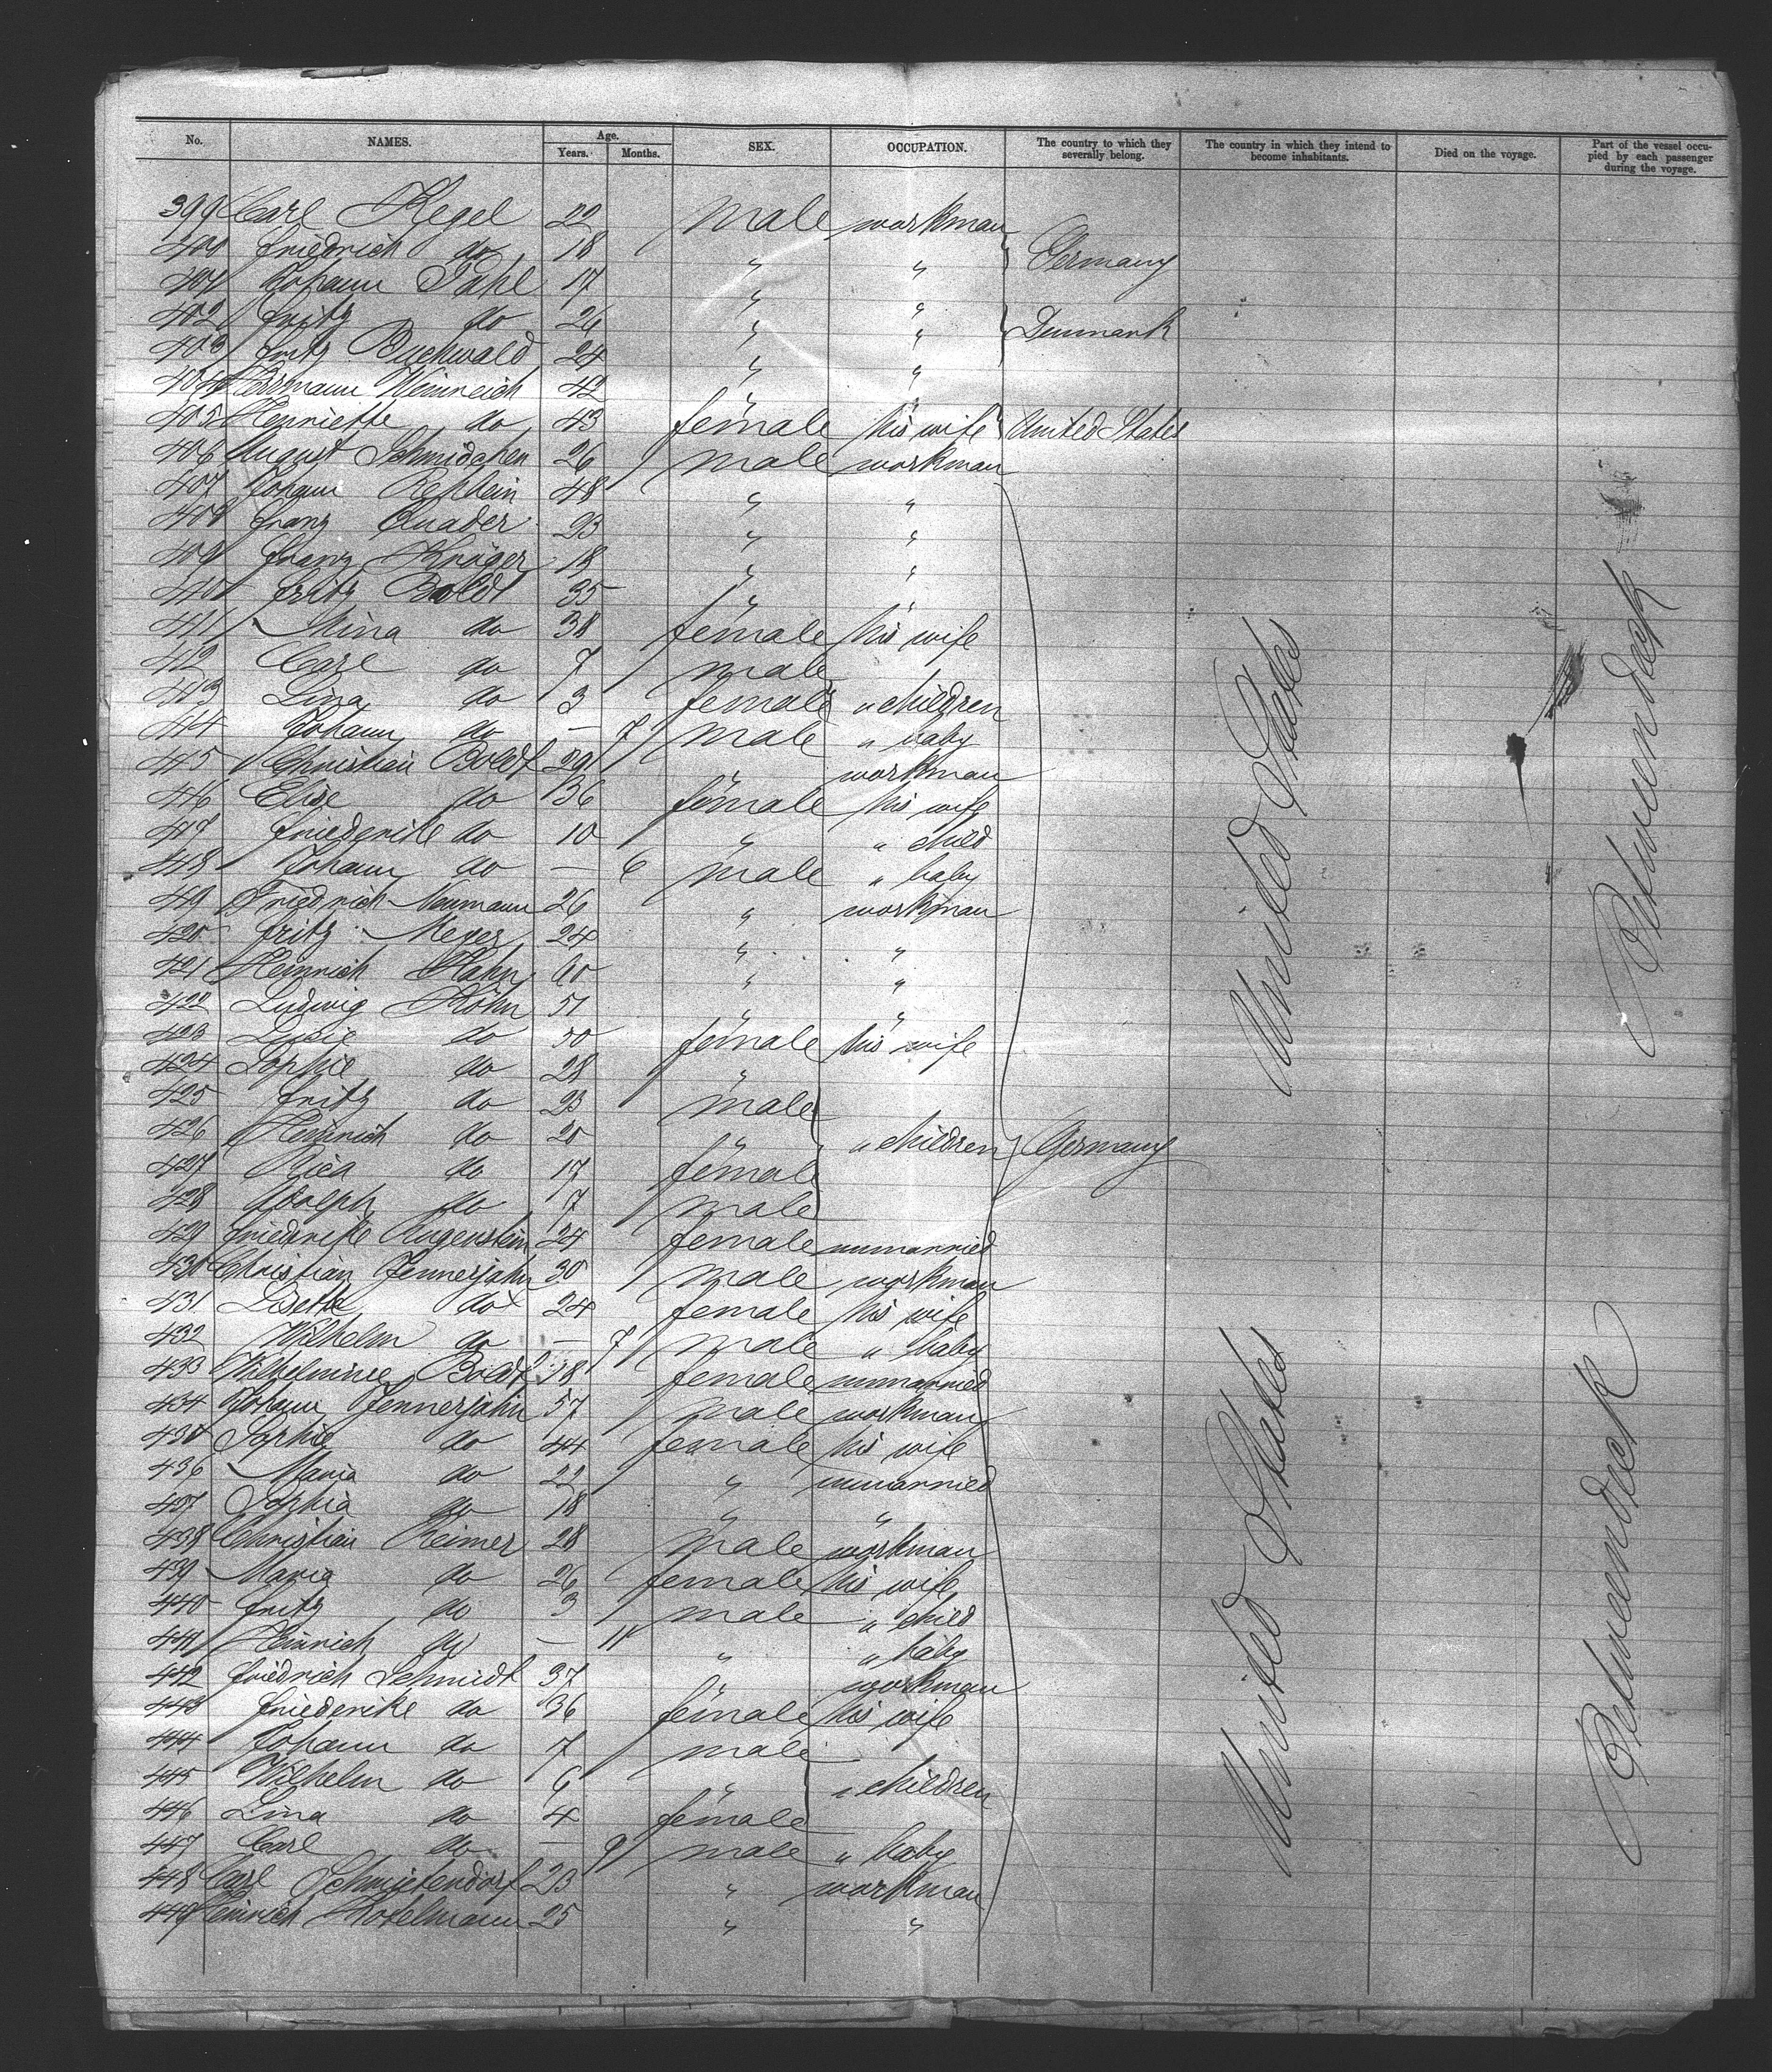 No. NAMES. Age. Years. Months. SEX. OCCUPATION. The country to which they severally belong. The country in which they intend to become inhabitants. Died on the voyage. Part of the vessel occupied by each passenger during the voyage.
399 Carl Kegel 22 male workman
400 Friedrich do 18 " " Germany
401 Johann Pahl 17 " "
402 Fritz do 26 " " Denmark
403 Fritz Buchwald 24 " "
404 Hermann Weinreich 42 " "
405 Henriette do 43 female his wife United States
406 August Schmidchen 26 male workman
407 Johann Rehbein 48 " "
408 Franz Quader 23 " "
409 Franz Kröger 19 " "
410 Fritz Boldt 35 " "
411 Mina do 38 female his wife
412 Carl do 7 male
413 Lina do 3 female " children
414 Johann do — 7 male " baby
415 Christian Boldt 29 " workman
416 Elise do 36 female his wife
417 Friederike do 10 " " child
418 Johann do — 6 male " baby
419 Friedrich Neumann 26 " workman
420 Fritz Meyer 24 " "
421 Heinrich Hahn 60 " "
422 Ludwig Köhn 51 " "
423 Lusie do 50 female his wife
424 Sophie do 28 "
425 Fritz do 23 male
426 Heinrich do 20 " " children Germany
427 Rica do 17 female
428 Adolph do 7 male
429 Friedrike Rugenstein 24 female unmarried
430 Christian Jennerjahn 30 male workman
431 Lisette do 24 female his wife
432 Wilhelm do — 7 male " baby
433 Wilhelmine Boldt 38 female unmarried
434 Johann Jennerjahn 57 male workman
435 Sophie do 44 female his wife
436 Maria do 22 " unmarried
437 Sophia do 18 " "
438 Christian Reimer 28 male workman
439 Maria do 26 female his wife
440 Fritz do 3 male " child
441 Heinrich do — 11 " " baby
442 Friedrich Schmidt 37 " workman
443 Friederike do 36 female his wife
444 Johann do 7 male
445 Wilhelm do 6 " " children
446 Lina do 4 female
447 Carl do — 9 male " baby
448 Carl Schmietendorf 23 " workman
449 Heinrich Hotelmann 25 " "
United States
United States
Betweendeck
Betweendeck